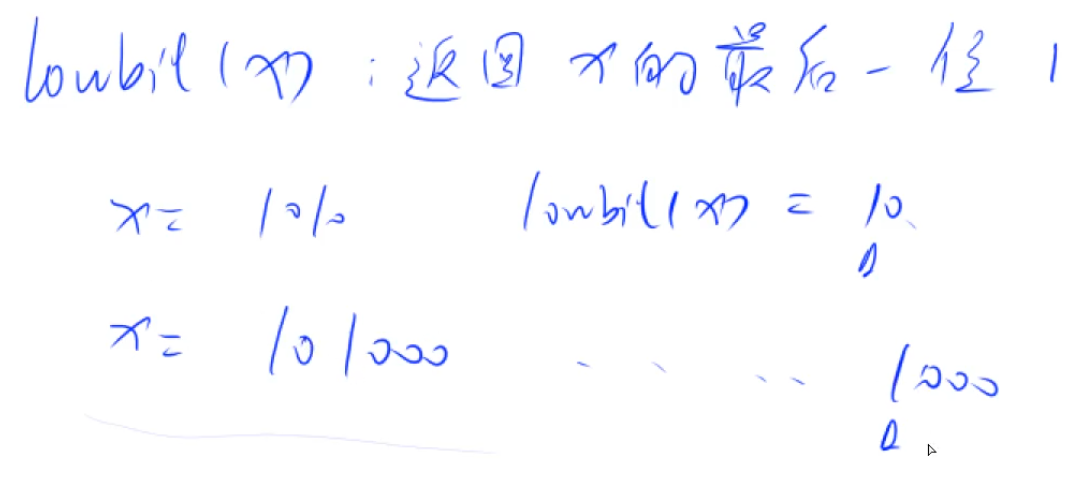 lowbit(x) : 返回 x 的最后一位 1
x = 1010 lowbit(x) = 10
x = 101000 . . . . 1000